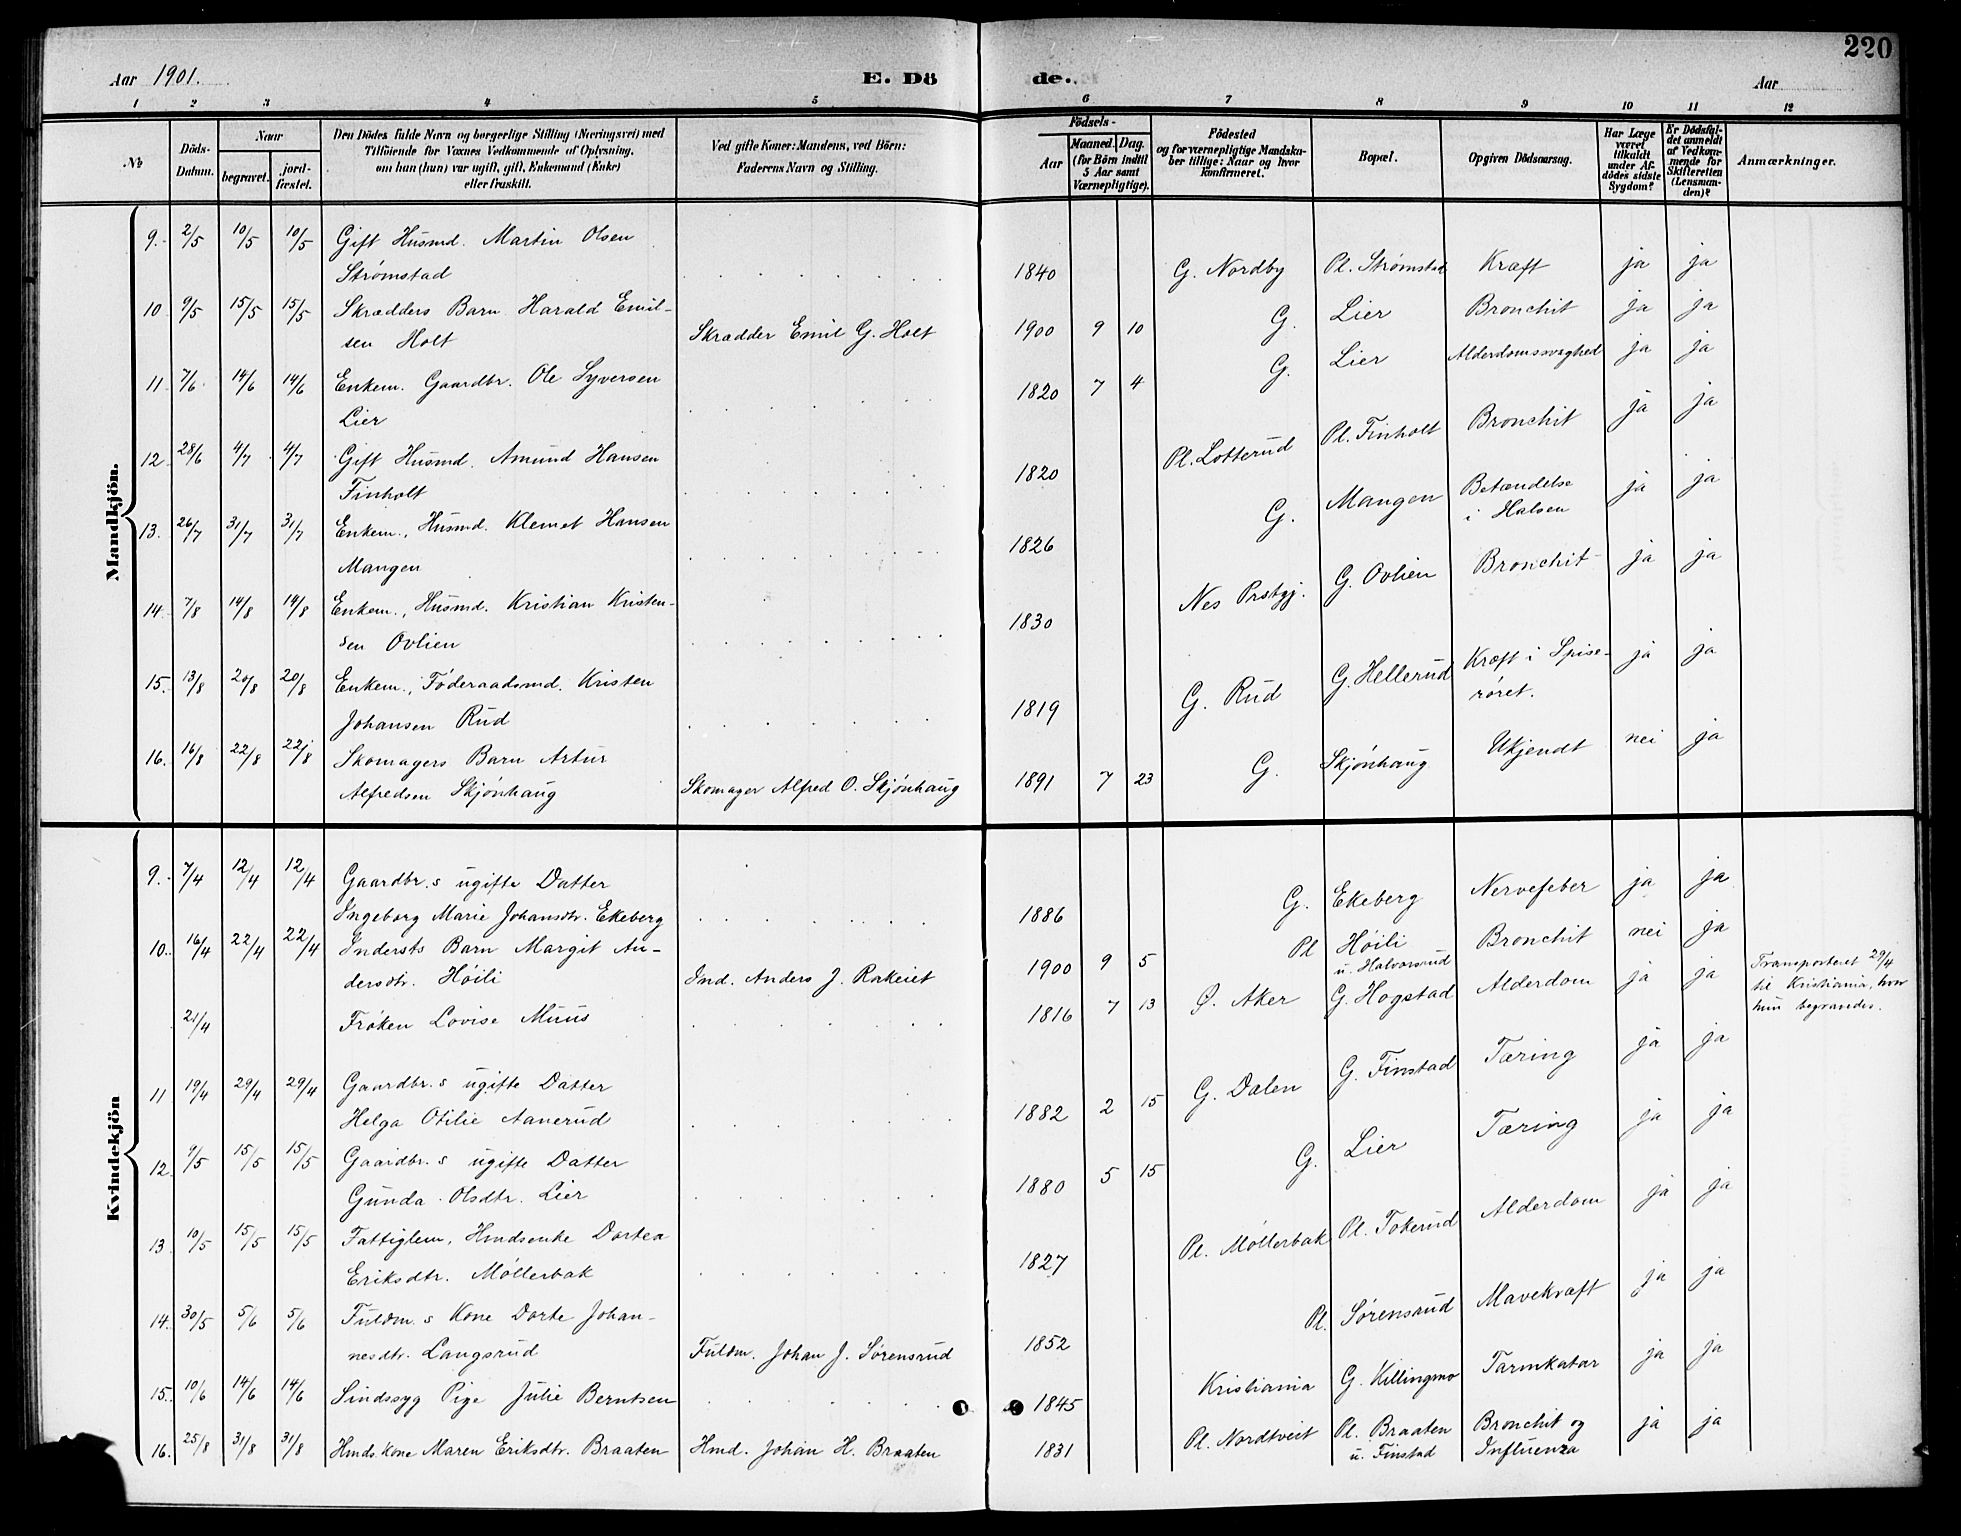 220
Aar 1901.
E. Dö
de.
Aar
1 2 3 4 5 6 7 8 9 10 11 12
No
Döds-
Datum.
Naar
begravet.
jord-
fæstet.
Den Dödes fulde Navn og borgerlige Stilling (Næringsvei) med
Tilföiende för Voxnes Vedkommende af Oplysning,
om han (hun) var ugift, gift, Enkemand (Enke)
eller fraskilt.
Ved gifte Koner: Mandens, ved Börn:
Faderens Navn og Stilling.
Födsels-
Aar
Maaned. Dag.
(for Börn indtil
5 Aar samt
Værnepligtige).
Födested
og for værnepligtige Mandska-
ber tillige: Naar og hvor
konfirmeret.
Bopæl.
Opgiven Dödsaarsag.
Har Læge
været
tilkaldt
under Af-
dödes sidste
Sygdom?
Er Dödsfal-
det anmeldt
af Vedkom-
mende for
Skifteretten
(Lensman-
den)?
Anmærkninger.
Mandkjön.
9. 2/5 10/5 10/5 Gift Husmd. Martin Olsen
Strømstad 1840 G. Nordby Pl. Strømstad Kræft ja ja
10 9/5 15/5 15/5 Skrædders Barn Harald Emil-
sen Holt Skrædder Emil G. Holt 1900 9 10 G. Lier Bronchit ja ja
11 7/6 14/6 14/6 Enkem. Gaardbr. Ole Syversen
Lier 1820 7 4 G. Lier Alderdomssvaghed ja ja
12 28/6 4/7 4/7 Gift Husmd. Amund Hansen
Finholt 1820 Pl. Lotterud Pl. Finholt Bronchit ja ja
13. 26/7 31/7 31/7 Enkem., Husmd. Klemet Hansen
Mangen 1826 G. Mangen Betændelse
i Halsen ja ja
14. 7/8 14/8 14/8 Enkem., Husmd. Kristian Kristen-
sen Ovlien 1830 Nes Prstgj. G. Ovlien Bronchit ja ja
15. 13/8 20/8 20/8 Enkem., Føderaadsmd. Kristen
Johansen Rud 1819 G. Rud G. Hellerud Kræft i Spise-
røret. ja ja
16. 16/8 22/8 22/8 Skomagers Barn Artur
Alfredsen Skjønhaug Skomager Alfred O. Skjønhaug 1891 7 23 G. Skjønhaug Ukjendt nei ja
Kvindekjön
9. 7/4 12/4 12/4 Gaardbr.s ugifte Datter
Ingeborg Marie Johansdtr. Ekeberg 1886 G. Ekeberg Nervefeber ja ja
10. 16/4 22/4 22/4 Indersts Barn Margit An-
dersdtr. Høili Ind. Anders J. Rakeiet 1900 9 5 Pl Høili
u. Halvorsrud Bronchit nei ja
21/4 Frøken Lovise Muus 1816 7 13 Ø. Aker G. Hogstad Alderdom ja ja Transporteret 29/4
til Kristiania, hvor
hun begravedes.
11 19/4 29/4 29/4 Gaardbr.s ugifte Datter
Helga Otilie Aanerud 1882 2 15 G. Dalen G. Finstad Tæring ja ja
12. 9/5 15/5 15/5 Gaardbr.s ugifte Datter
Gunda Olsdtr. Lier 1880 5 15 G. Lier Tæring ja ja
13. 10/5 15/5 15/5 Fattiglem, Hmdsenke Dortea
Eriksdtr. Møllerbak 1827 Pl. Møllerbak Pl. Tokerud Alderdom ja ja
14. 30/5 5/6 5/6 Fuldm.s Kone Dorte Johan-
nesdtr. Langsrud Fuldm. Johan J. Sørensrud 1852 Pl. Sørensrud Mavekræft ja ja
15. 10/6 14/6 14/6 Sindssyg Pige Julie Berntsen 1845 Kristiania G. Killingmo Tarmkatar ja ja
16. 25/8 31/8 31/8 Hmds kone Maren Eriksdtr. Braaten Hmd. Johan H. Braaten 1831 Pl. Nordtveit Pl. Braaten
u. Finstad Bronchit og
Influenza ja ja